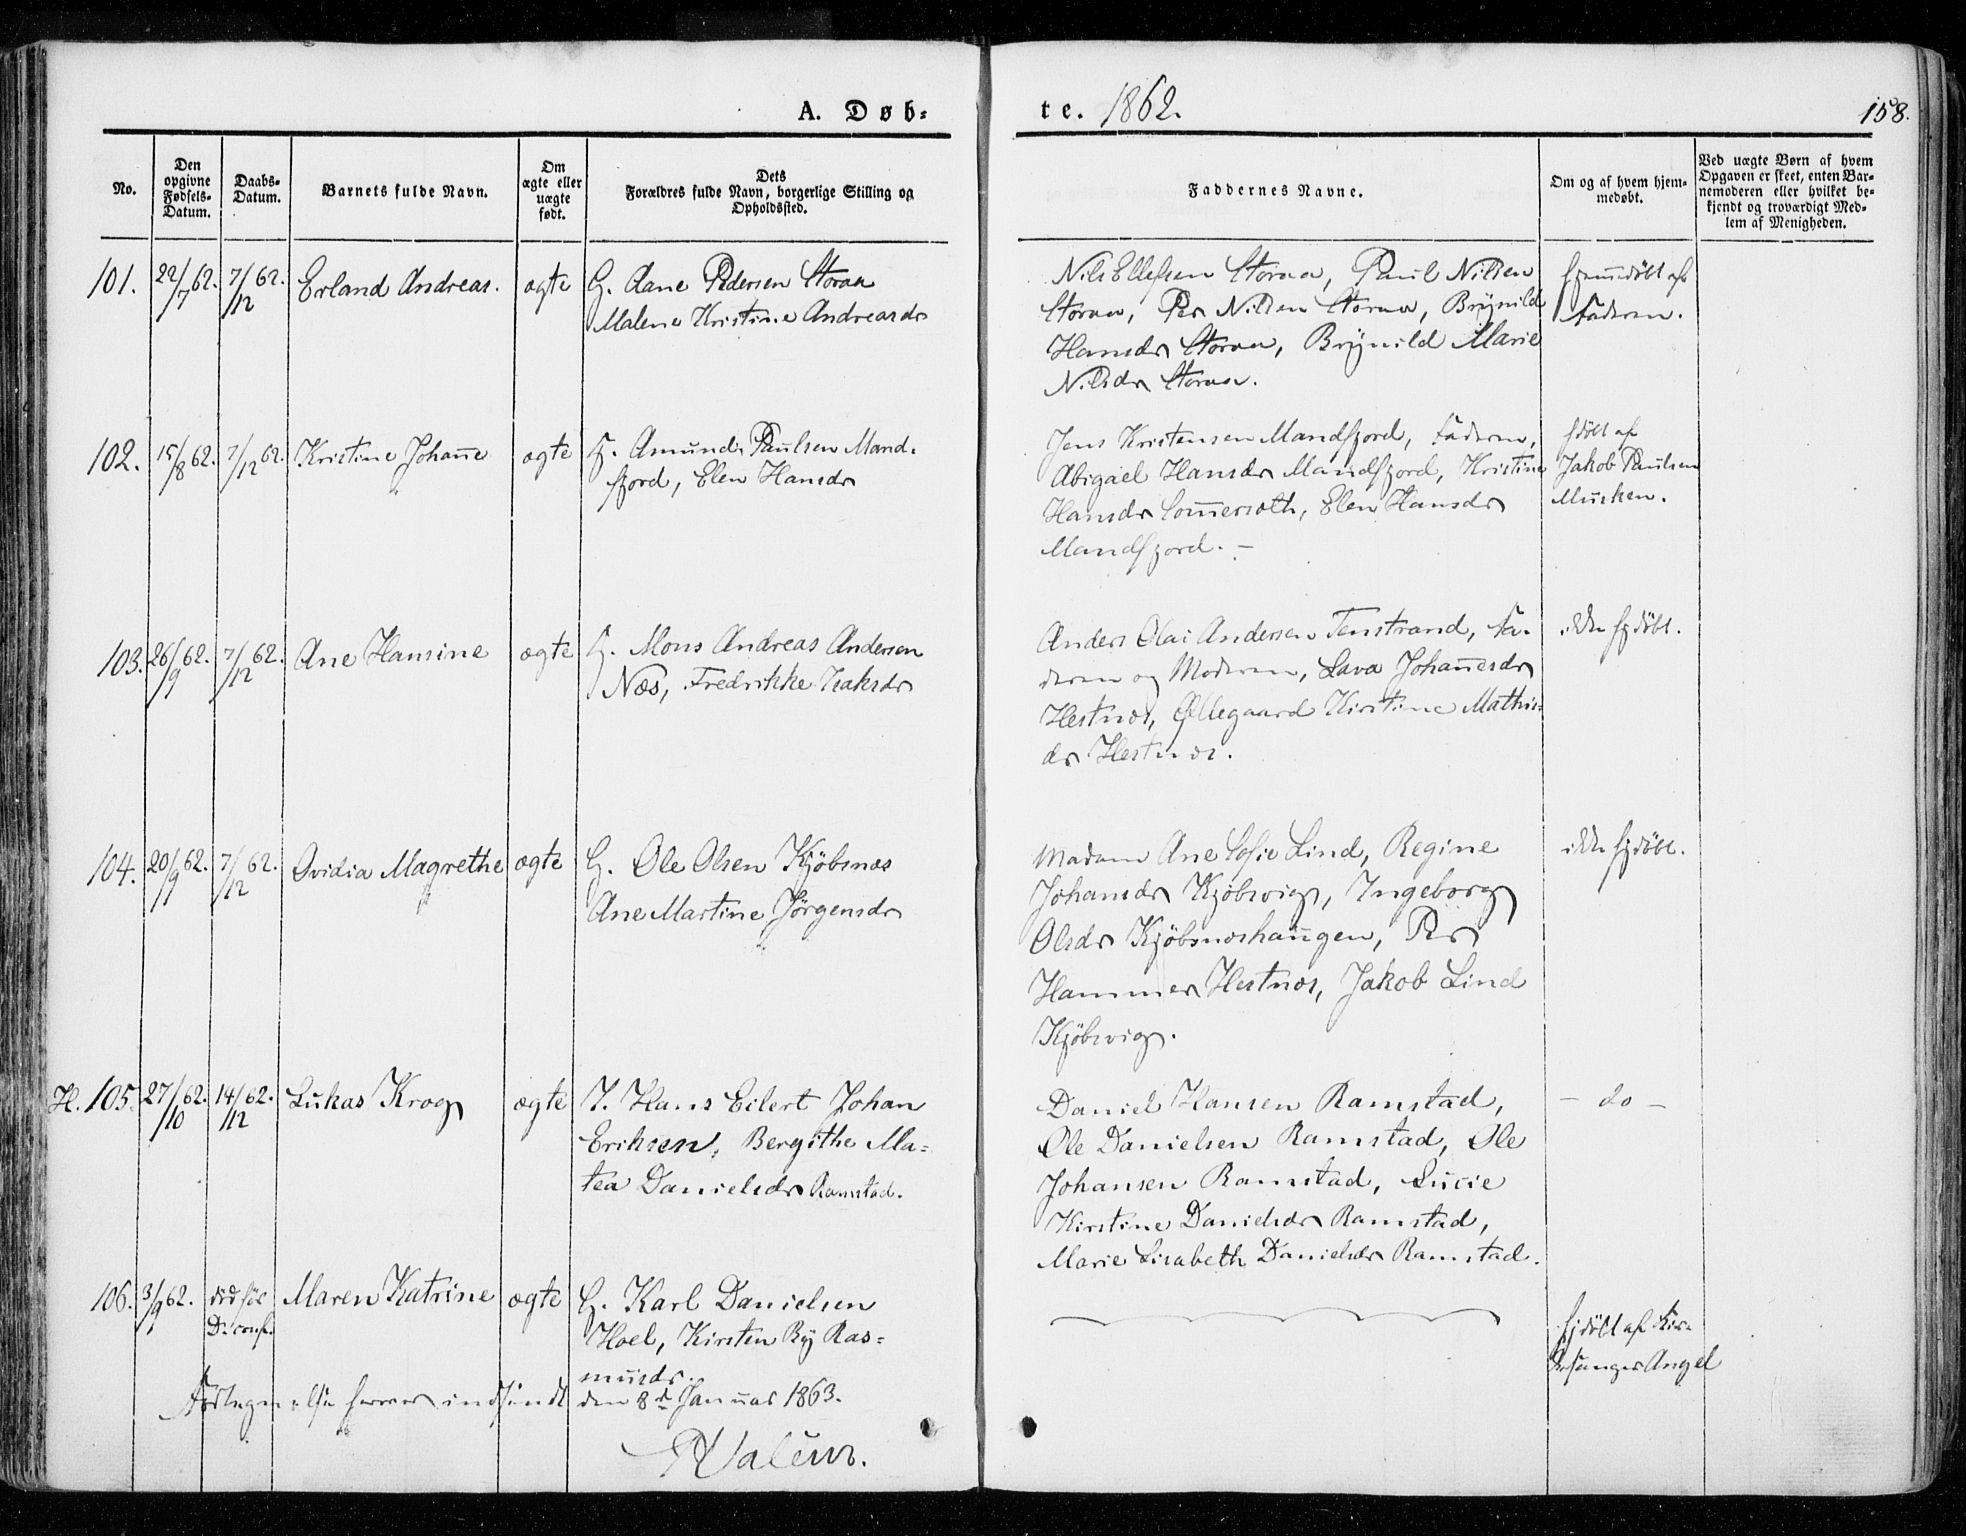 A. Døb-
te. 1862.
158.
No.
Den opgivne Fødsels-Datum.
Daabs-Datum.
Barnets fulde Navn.
Om ægte eller uægte født.
Dets Forældres fulde Navn, borgerlige Stilling og Opholdssted.
Faddernes Navne.
Om og af hvem hjem-medøbt.
Ved uægte Børn af hvem Opgaven er skeet, enten Bar-nemoderen eller hvilket be-kjendt og troværdigt Med-lem af Menigheden.
101. 22/7 62. 7/12 62. Erland Andreas. ægte G. Aane Pedersen Storaa
Malene Kristine Andreasdr
Nils Ellefsen Storaa, Paul Nilsen
Storaa, Per Nilsen Storaa, Brynild
Hansdr Storaa, Brynild Marie
Nilsdr Storaa.
hjemmedöbt af
Faderen.
102. 15/8 62. 7/12 62. Kristine Johan̄e ægte G. Amund Paulsen Mand-
fjord, Elen Hansdr
Jens Kristensen Mandfjord, Faderen,
Abigael Hansdr Mandfjord, Kristine
Hansdr Som̄ersæth, Elen Hansdr
Mandfjord. -
hjdöbt af
Jakob Paulsen
Musken.
103. 26/9 62. 7/12 62. Ane Hansine ægte G. Mons Andreas Andersen
Næs, Fredrikke Isaksdr
Anders Olai Andersen Tenstrand, Fa-
deren og Moderen, Lava Johan̄esdr
Hestnæs, Øllegaard Kirstine Mathis-
dr Hestnæs.
ikke hjdöbt.
104. 20/9 62. 7/12 62. Ovidia Magrethe ægte G. Ole Olsen Kjöbsnæs
Ane Martine Jörgensdr
Madam Ane Sofie Lind, Regine
Johansdr Kjöbsvig, Ingeborg
Olsdr Kjöbsnæshaugen, Per
Hammer Hestnæs, Jakob Lind
Kjöbsvig.
ikke hjdöbt.
H. 105. 27/10 62. 14/12 62. Lukas Krog ægte I. Hans Eilert Johan
Eriksen, Bergithe Ma-
tea Danielsdr Ramstad.
Daniel Hansen Ramstad,
Ole Danielsen Ramstad, Ole
Johansen Ramstad, Lucie
Kirstine Danielsdr Ramstad,
Marie Lisabeth Danielsdr Ramstad.
- do -
106. 3/9 62. död før D: conf. Maren Katrine ægte G. Karl Danielsen
Hoel, Kirsten By Ras-
musdr.
hjdöbt af Kir-
kesanger Angel
Fortegnelse herover indsendt den 8de Januar 1863.